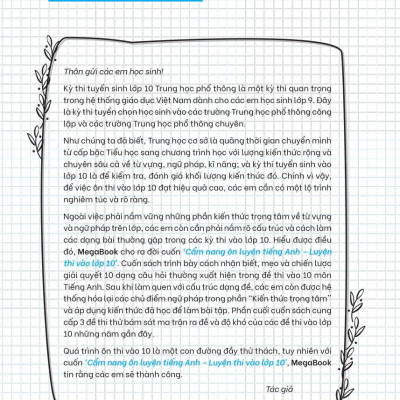 Thân gửi các em học sinh!
Kỳ thi tuyển sinh lớp 10 Trung học phổ thông là một kỳ thi quan trọng
trong hệ thống giáo dục Việt Nam dành cho các em học sinh lớp 9. Đây
là kỳ thi tuyển chọn học sinh vào các trường Trung học phổ thông công
lập và các trường Trung học phổ thông chuyên.
Như chúng ta đã biết, Trung học cơ sở là quãng thời gian chuyển mình
từ cấp bậc Tiểu học sang chương trình học với lượng kiến thức rộng và
chuyên sâu cả về từ vựng, ngữ pháp, kĩ năng; và kỳ thi tuyển sinh vào
lớp 10 là để kiểm tra, đánh giá khối lượng kiến thức đó. Chính vì vậy,
để việc ôn thi vào lớp 10 đạt hiệu quả cao, các em cần có một lộ trình
nghiêm túc và rõ ràng.
Ngoài việc phải nắm vững những phần kiến thức trọng tâm về từ vựng
và ngữ pháp trên lớp, các em còn cần phải nắm rõ cấu trúc và cách làm
các dạng bài thường gặp trong các kỳ thi vào lớp 10. Hiểu được điều
đó, MegaBook cho ra đời cuốn 'Cẩm nang ôn luyện tiếng Anh – Luyện
thi vào lớp 10'. Cuốn sách trình bày cách nhận biết, mẹo và chiến lược
giải quyết 10 dạng câu hỏi thường xuất hiện trong đề thi vào 10 môn
Tiếng Anh. Sau khi làm quen với cấu trúc dạng đề, các em còn được hệ
thống hóa lại các chủ điểm ngữ pháp trong phần “Kiến thức trọng tâm”
và áp dụng kiến thức đã học để làm bài tập. Phần cuối cuốn sách cung
cấp 3 đề thi thử bám sát ma trận ra đề và độ khó của các đề thi vào lớp
10 những năm gần đây.
Quá trình ôn thi vào 10 là một con đường đầy thử thách, tuy nhiên với
cuốn 'Cẩm nang ôn luyện tiếng Anh – Luyện thi vào lớp 10', MegaBook
tin rằng các em sẽ thành công.
Tác giả